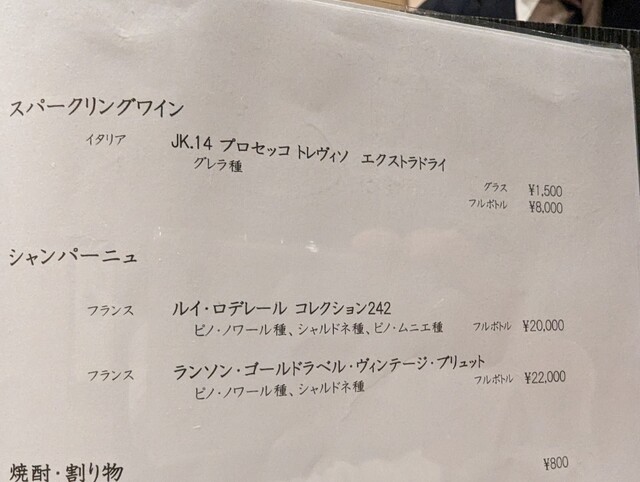 スパークリングワイン
イタリア JK.14 プロセッコ トレヴィソ エクストラドライ
グレラ種
グラス ¥1,500
フルボトル ¥8,000
シャンパーニュ
フランス ルイ・ロデレール コレクション242
ピノ・ノワール種、シャルドネ種、ピノ・ムニエ種 フルボトル ¥20,000
フランス ランソン・ゴールドラベル・ヴィンテージ・ブリュット
ピノ・ノワール種、シャルドネ種 フルボトル ¥22,000
焼酎・割り物 ¥800